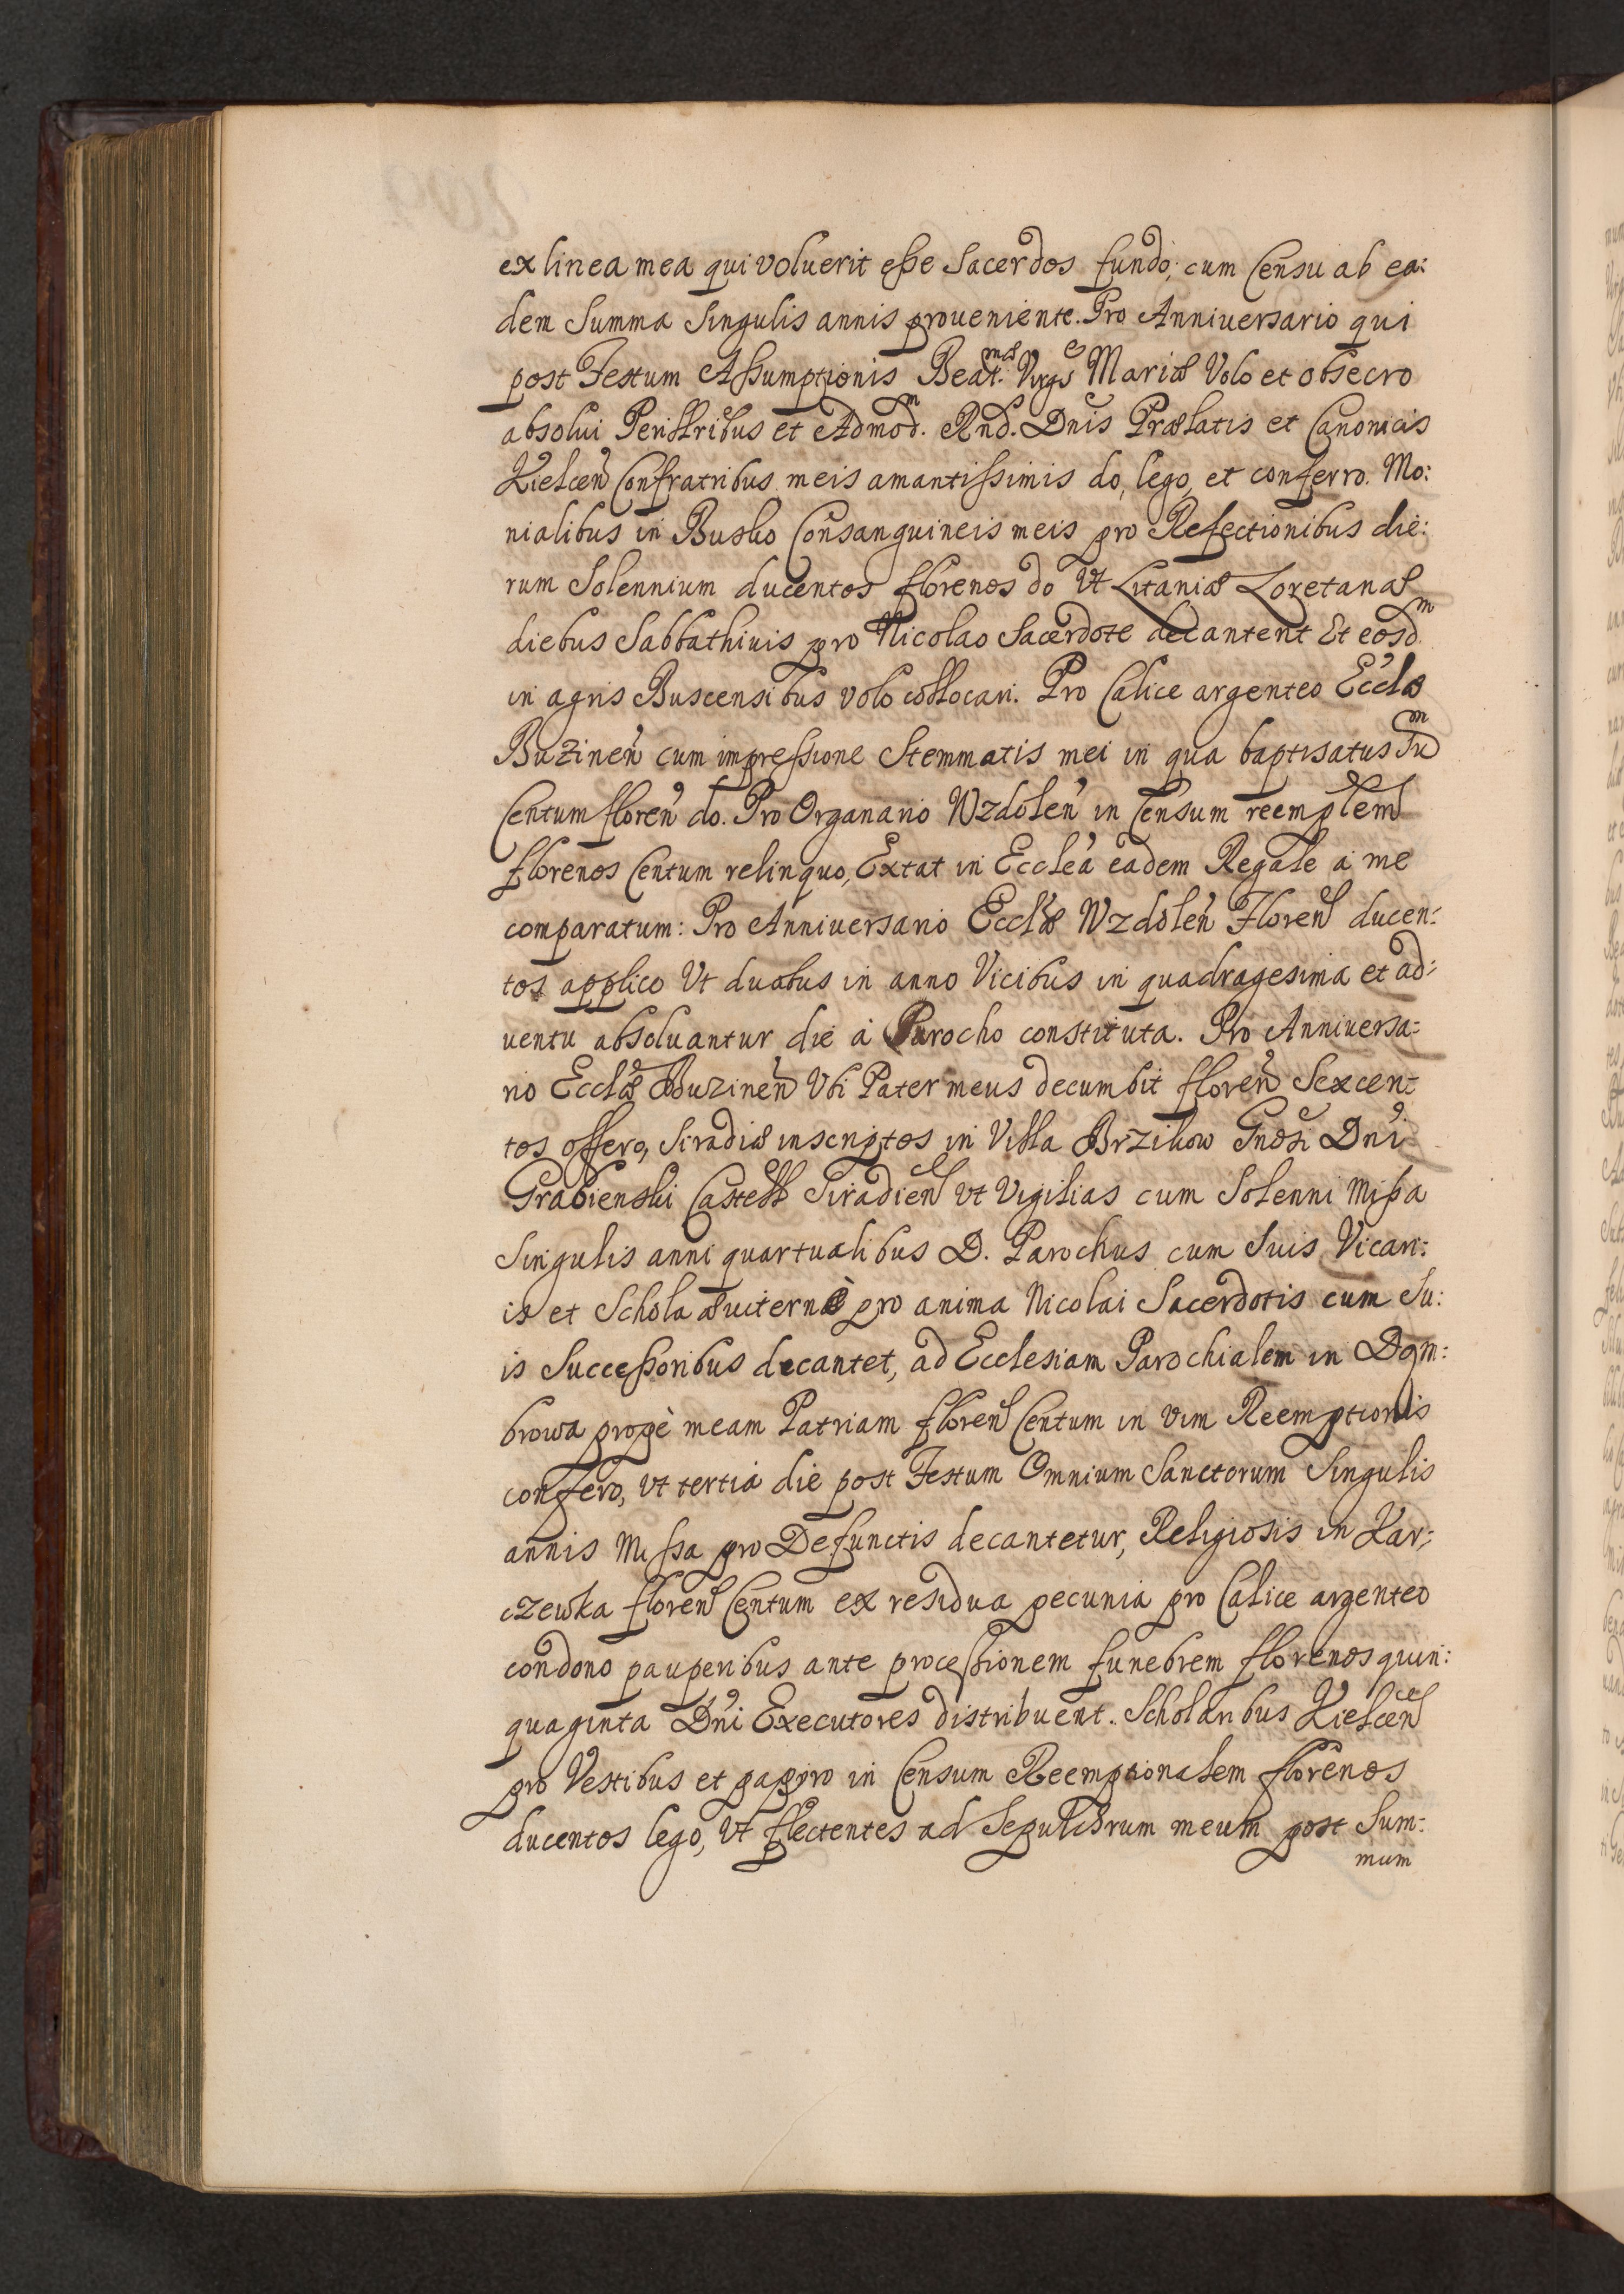 ex linea mea qui voluerit eße Sacerdos fundo; cum Censu ab ea:
dem Summa Singulis annis proueniente. Pro Anniuersario qui
post Festum Aßumptionis Beat.mæ Virgs Mariæ Volo et obsecro
absolui Perillribus et Admod.m Rnd. Dnis Prælatis et Canonicis
Kielcen̄ Confratribus meis amantißimis do, lego, et conferro. Mo:
nialibus in Busko Consanguineis meis pro Refectionibus die:
rum Solennium ducentos florenos do Vt Litaniæ Loretanæ
diebus Sabbathinis pro Nicolao Sacerdote decantent Et eosd.m
in agris Buscensibus volo collocari. Pro Calice argenteo Ecclæ
Buzinen̄ cum impreßione Stemmatis mei in qua baptisatus Sum
Centum floren̄ do. Pro Organario Wzdolen̄ in Censum reemplem
florenos Centum relinquo, Extat in Ecclea eadem Regale a me
comparatum: Pro Anniuersario Ecclæ Wzdolen̄ Floren̄ ducen:
tos applico Vt duabus in anno Vicibus in quadragesima et ad:
uentu absoluantur die à Parocho constituta. Pro Anniuersa:
rio Ecclæ Buzinen̄ Vbi Pater meus decumbit floren̄ Sexcen:
tos offero, Siradiæ inscriptos in Villa Brzikow Gnosi Dni
Grabienski Castell Siradien̄ vt Vigilias cum Solenni Mißa
Singulis anni quartualibus D. Parochus cum Suis Vicari:
is et Schola æuiternè pro anima Nicolai Sacerdotis cum Su:
is Succeßoribus decantet, ad Ecclesiam Parochialem in Dąm:
browa propè meam Patriam floren̄ Centum in vim Reemptionis
confero, vt tertia die post Festum Omnium Sanctorum Singulis
annis Mißa pro Defunctis decantetur, Religiosis in Kar:
czewka floren̄ Centum ex residua pecunia pro Calice argenteo
condono pauperibus ante proceßionem funebrem florenos quin:
quaginta Dni Executores distribuent. Scholaribus Kielcen̄
pro Vestibus et papiro in Censum Reemptionalem florenos
ducentos lego, Vt flectentes ad Sepulchrum meum post Sum:
mum